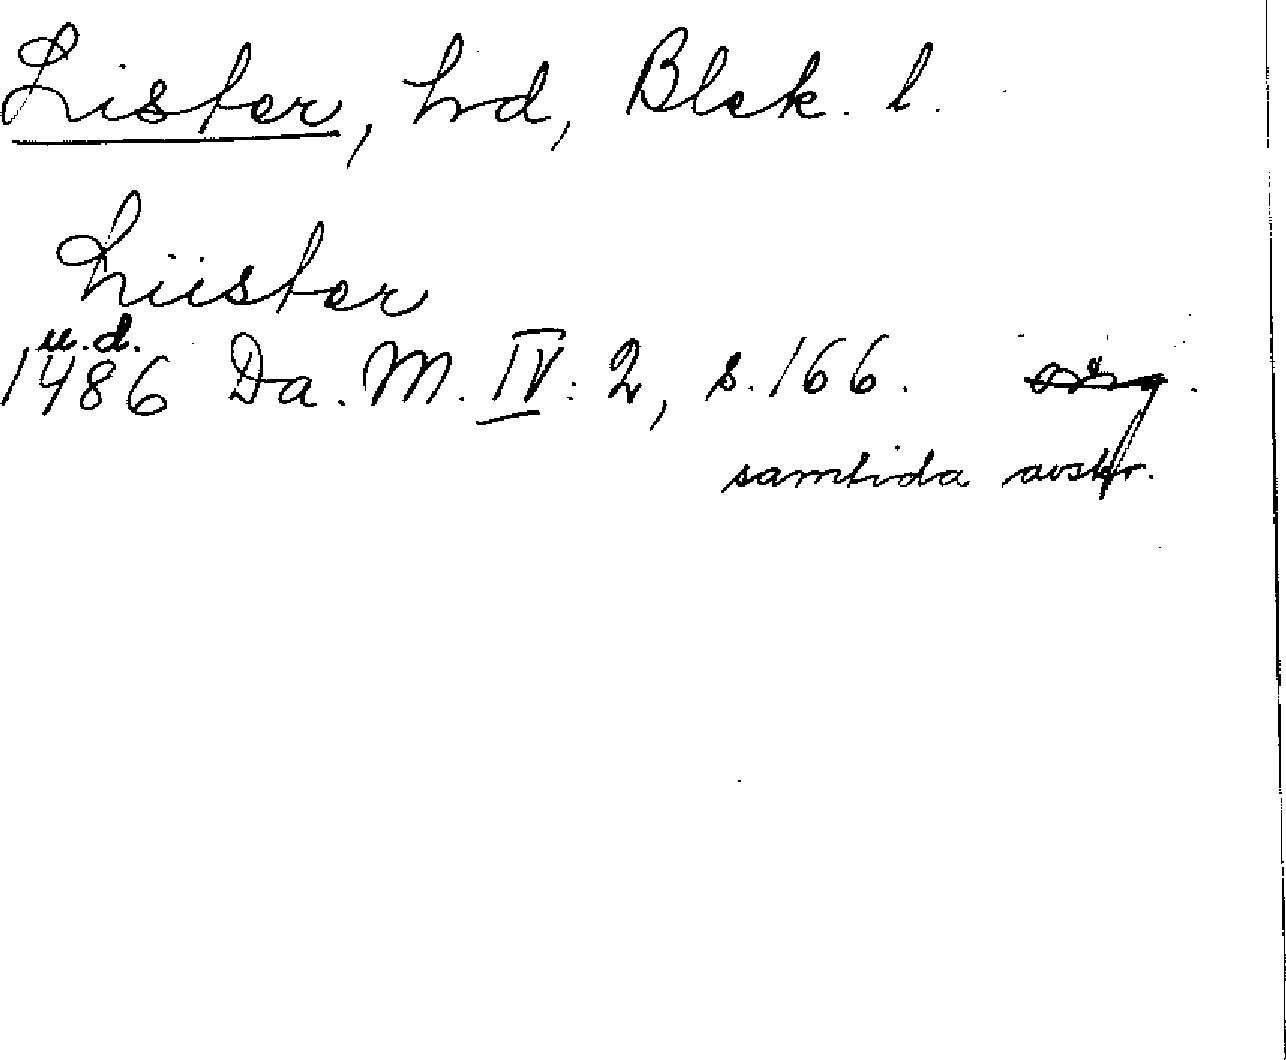 Lister, hrd, Blek. l.
Liister
u.d.
1486 Da. M. IV: 2, s. 166. orig.
samtida avskr.